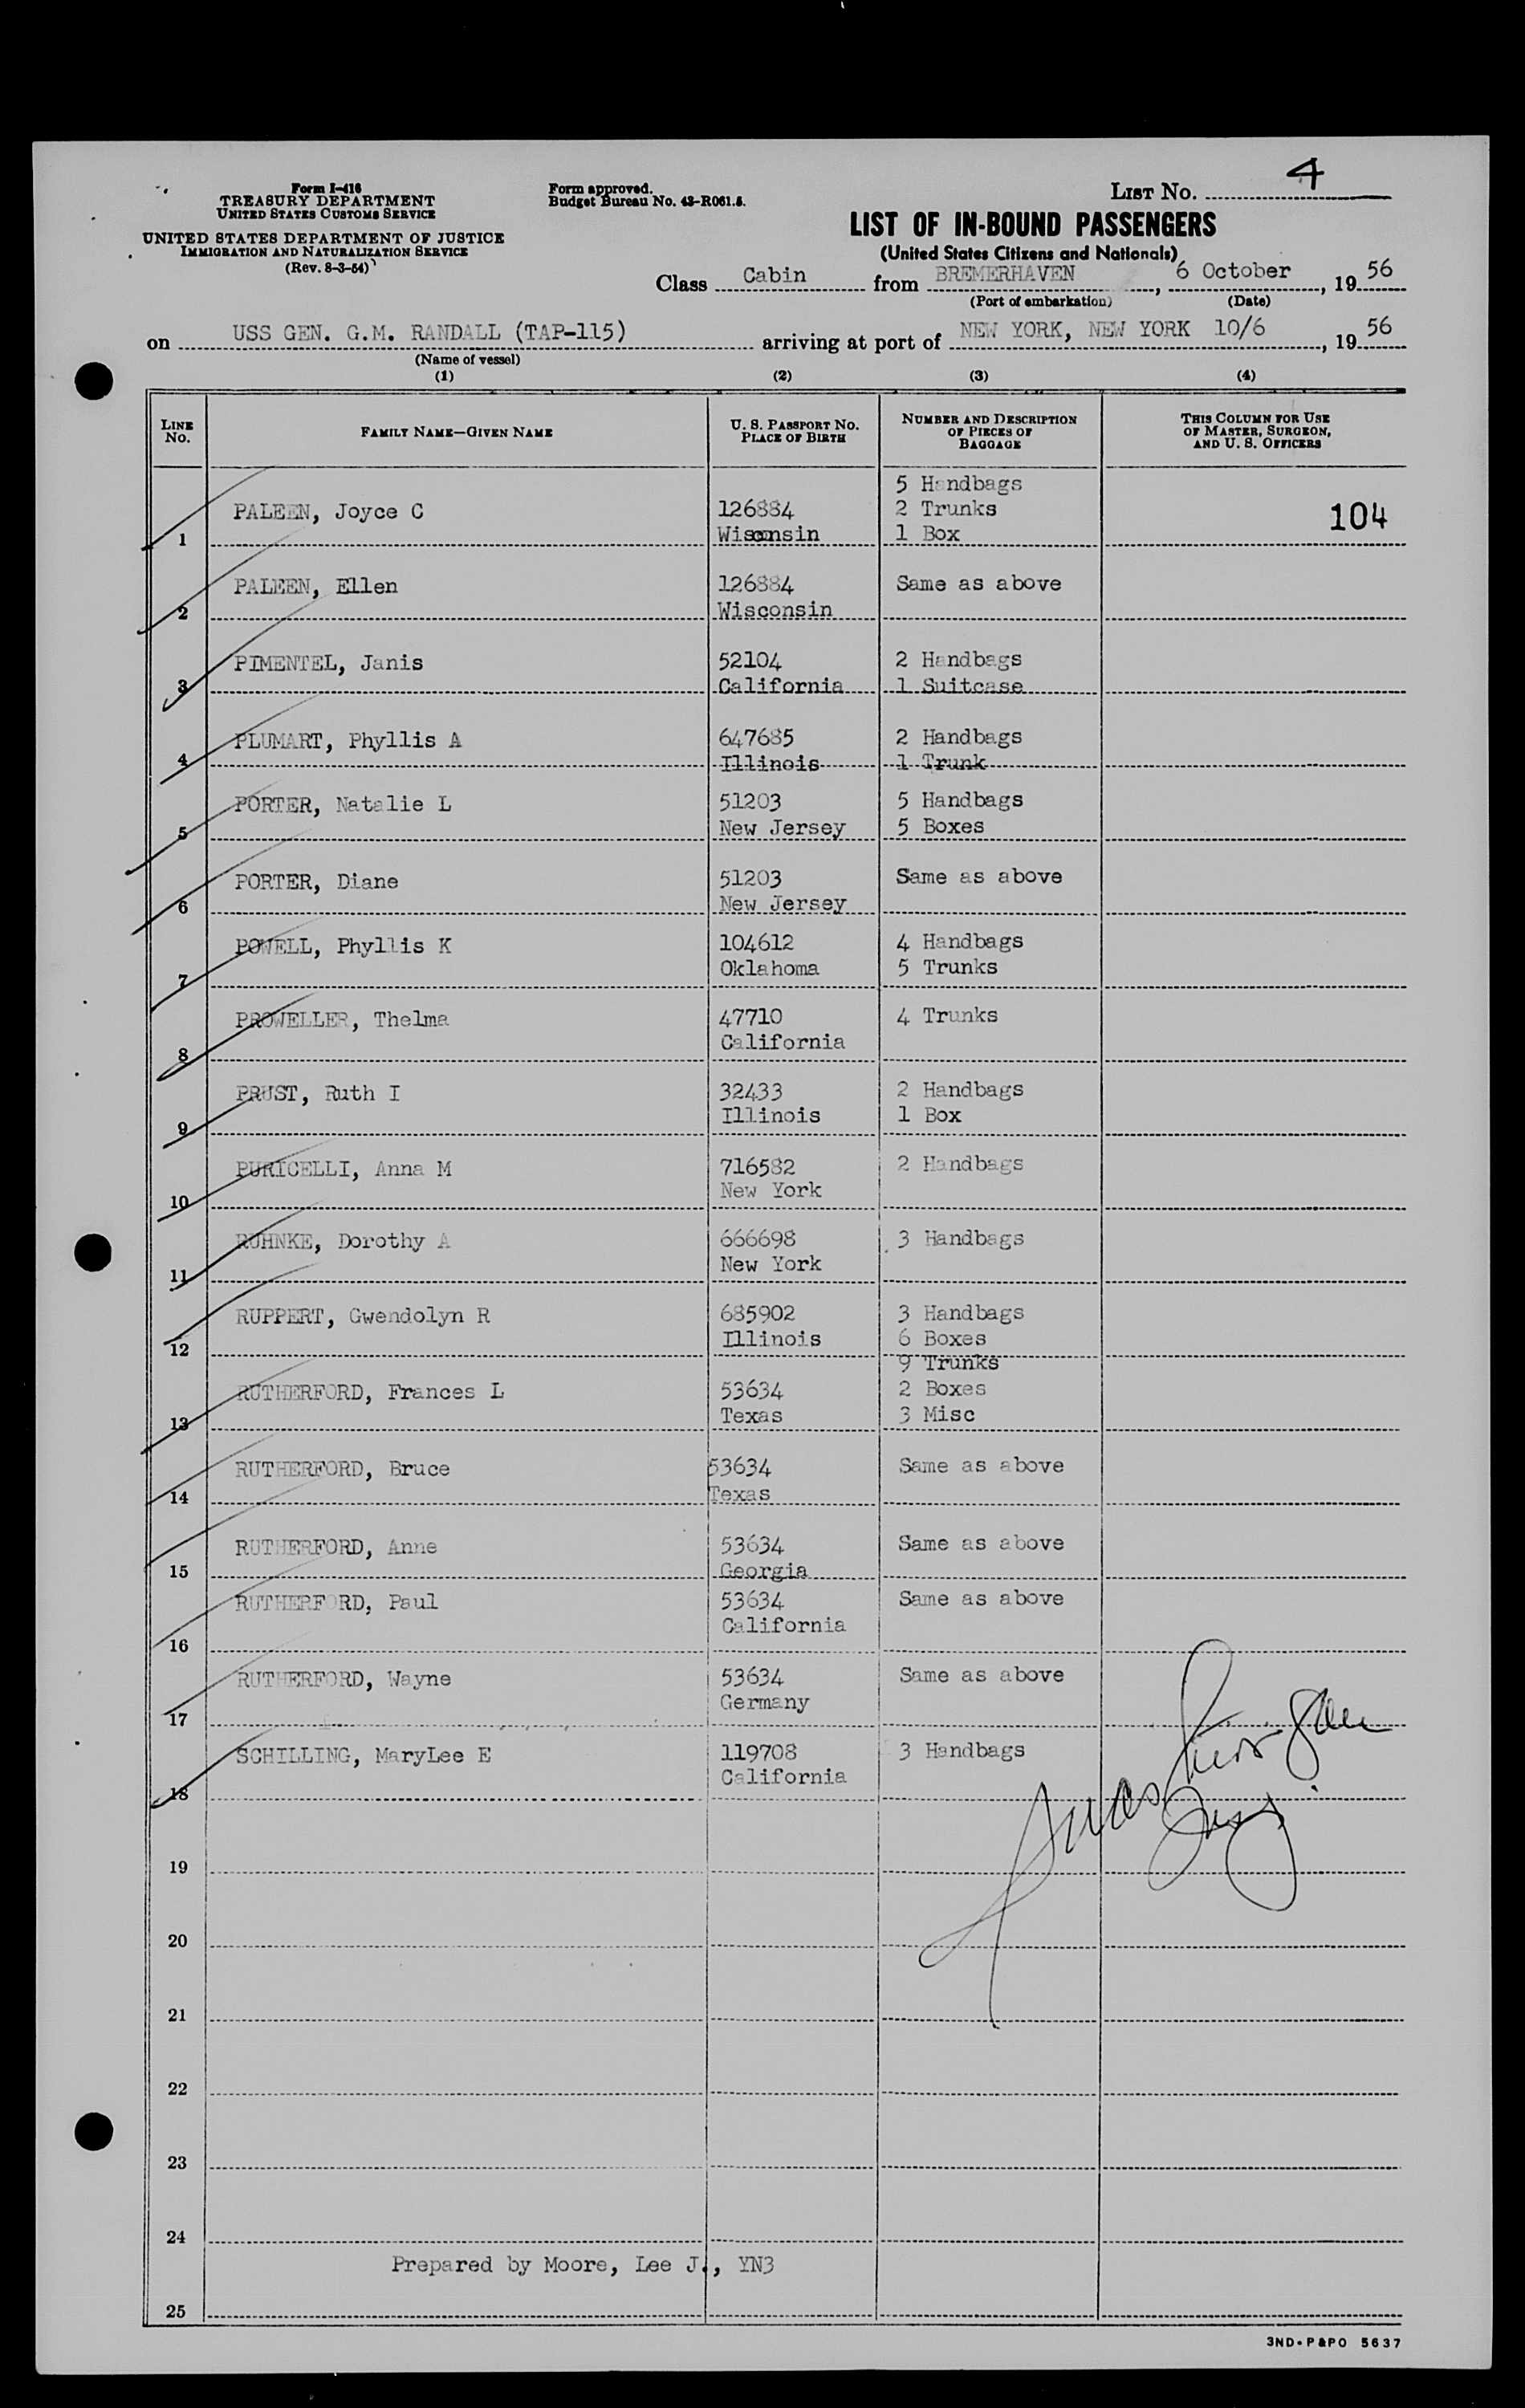 Form I-416
TREASURY DEPARTMENT
UNITED STATES CUSTOMS SERVICE
UNITED STATES DEPARTMENT OF JUSTICE
IMMIGRATION AND NATURALIZATION SERVICE
(Rev. 8-3-54)
Form approved.
Budget Bureau No. 43-R061.5.
LIST No. 4
LIST OF IN-BOUND PASSENGERS
(United States Citizens and Nationals)
Class Cabin from BREMERHAVEN, 6 October, 19 56
(Port of embarkation) (Date)
on USS GEN. G.M. RANDALL (TAP-115) arriving at port of NEW YORK, NEW YORK 10/6, 19 56
(Name of vessel)
(1) (2) (3) (4)
LINE No. FAMILY NAME—GIVEN NAME U. S. PASSPORT No. PLACE OF BIRTH NUMBER AND DESCRIPTION OF PIECES OF BAGGAGE THIS COLUMN FOR USE OF MASTER, SURGEON, AND U. S. OFFICERS
5 Handbags
PALEEN, Joyce C 126884 2 Trunks 104
1 Wisconsin 1 Box
PALEEN, Ellen 126884 Same as above
2 Wisconsin
PIMENTEL, Janis 52104 2 Handbags
3 California 1 Suitcase
PLUMART, Phyllis A 647685 2 Handbags
4 Illinois 1 Trunk
PORTER, Natalie L 51203 5 Handbags
5 New Jersey 5 Boxes
PORTER, Diane 51203 Same as above
6 New Jersey
POWELL, Phyllis K 104612 4 Handbags
7 Oklahoma 5 Trunks
PROWELLER, Thelma 47710 4 Trunks
8 California
PRUST, Ruth I 32433 2 Handbags
9 Illinois 1 Box
PURICELLI, Anna M 716582 2 Handbags
10 New York
RUHNKE, Dorothy A 666698 3 Handbags
11 New York
RUPPERT, Gwendolyn R 685902 3 Handbags
12 Illinois 6 Boxes
9 Trunks
RUTHERFORD, Frances L 53634 2 Boxes
13 Texas 3 Misc
RUTHERFORD, Bruce 53634 Same as above
14 Texas
RUTHERFORD, Anne 53634 Same as above
15 Georgia
RUTHERF RD, Paul 53634 Same as above
16 California
RUTHERFORD, Wayne 53634 Same as above
17 Germany
SCHILLING, MaryLee E 119708 3 Handbags
18 California
19
20
21
22
23
24
Prepared by Moore, Lee J., YN3
25
3ND-P&PO 5637